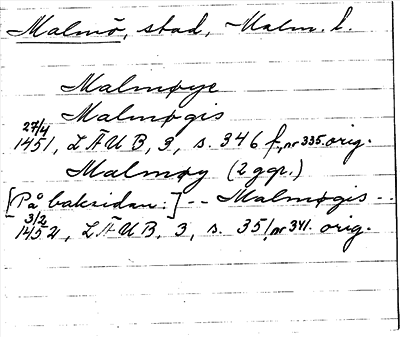 Malmö, stad, Malm. l.
Malmøye
Malmøgis
27/4 1451, LÄUB, 3, s. 346 f, nr 335. orig.
Malmøy (2 ggr.)
[På baksidan:] -- Malmøgis --
3/2 1452, LÄUB, 3, s. 351, nr 341. orig.